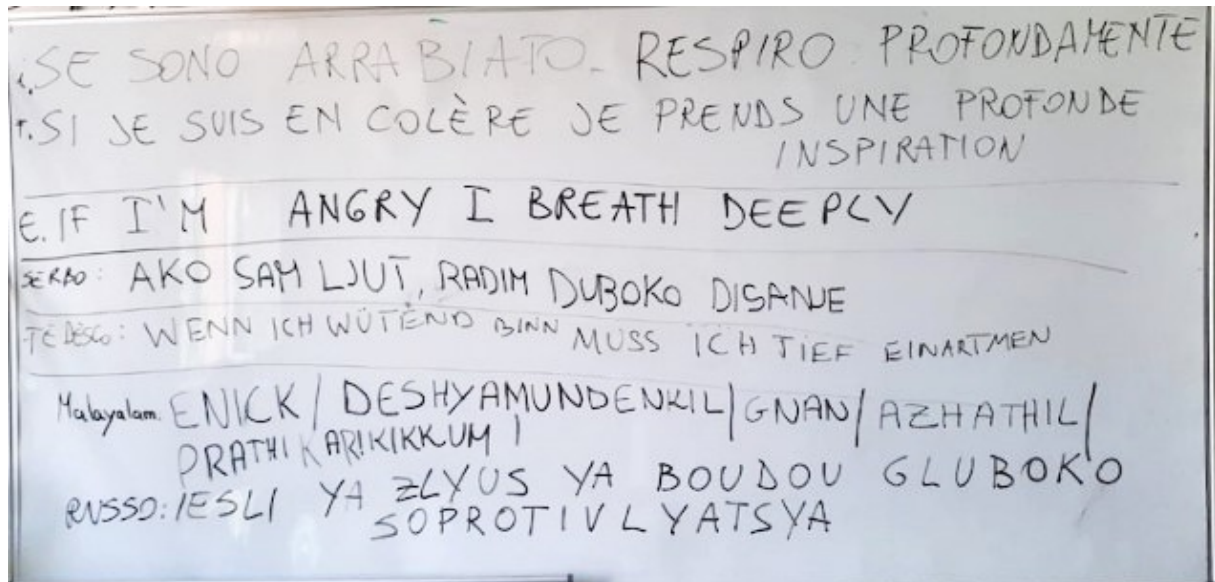 I. SE SONO ARRABIATO. RESPIRO PROFONDAMENTE
F. SI JE SUIS EN COLÈRE JE PRENDS UNE PROFONDE
INSPIRATION
E. IF I'M ANGRY I BREATH DEEPLY
SERBO: AKO SAM LJUT, RADIM DUBOKO DISANJE
TEDESCO: WENN ICH WÜTEND BINN MUSS ICH TIEF EINARTMEN
Malayalam: ENICK / DESHYAMUNDENKIL / GNAN / AZHATHIL /
PRATHIKARIKIKKUM /
RUSSO: IESLI YA ZLYUS YA BOUDOU GLUBOKO
SOPROTIVLYATSYA